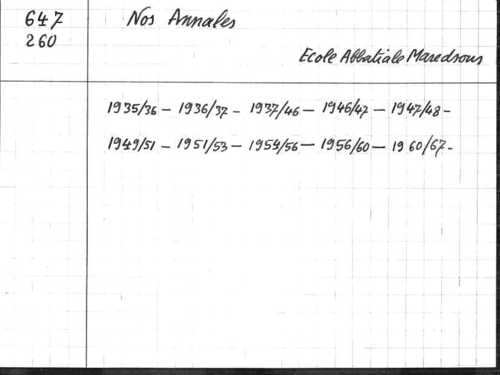 647
260
Nos Annales
Ecole Abbatiale Maredsous
1935/36 — 1936/37 - 1937/46 — 1946/47 — 1947/48 -
1949/51 — 1951/53 — 1954/56 — 1956/60 — 1960/67 -